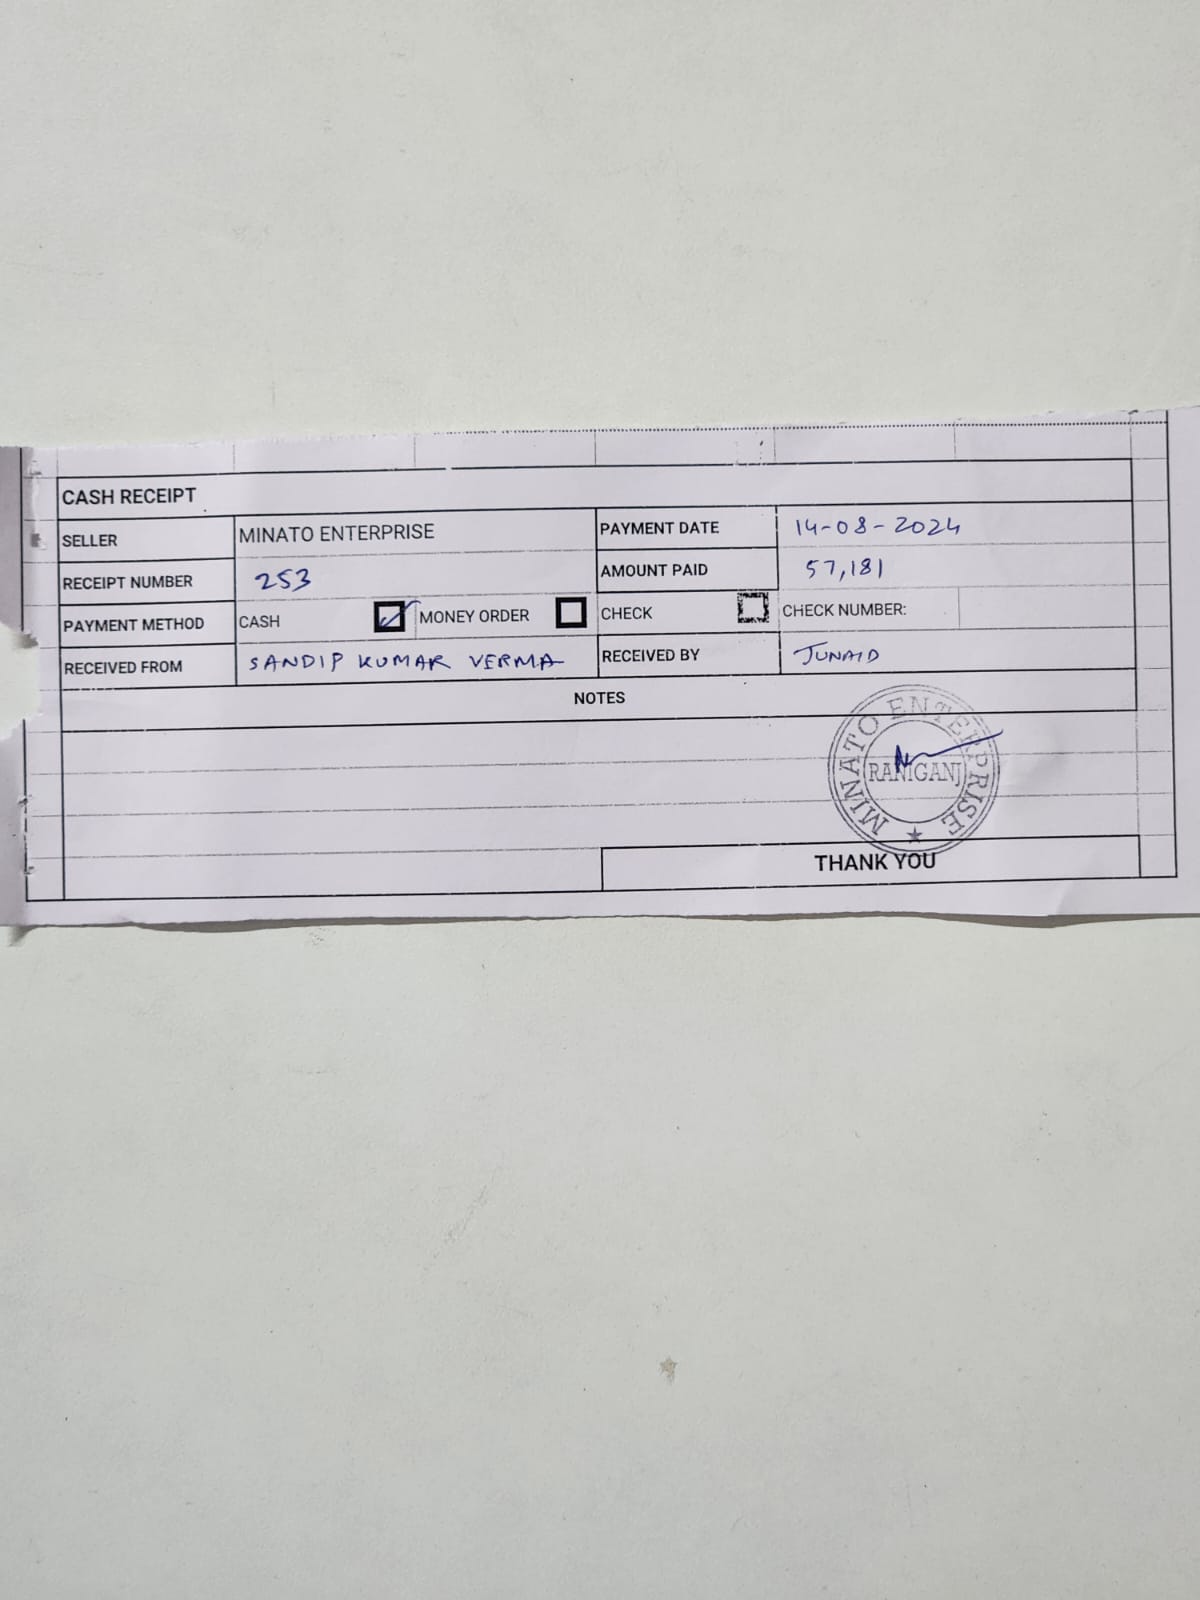 CASH RECEIPT
SELLER MINATO ENTERPRISE PAYMENT DATE 14-08-2024
RECEIPT NUMBER 253 AMOUNT PAID 57,181
PAYMENT METHOD CASH MONEY ORDER CHECK CHECK NUMBER:
RECEIVED FROM SANDIP KUMAR VERMA RECEIVED BY JUNAID
NOTES
MINATO ENTERPRISE
RANIGANJ
THANK YOU